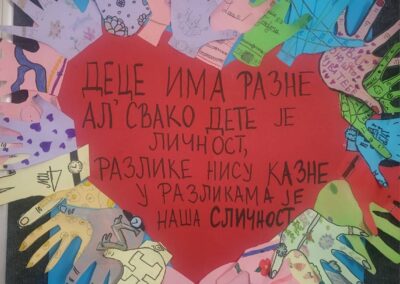 ДЕЦЕ ИМА РАЗНЕ
АЛ' СВАКО ДЕТЕ ЈЕ
ЛИЧНОСТ,
РАЗЛИКЕ НИСУ КАЗНЕ
У РАЗЛИКАМА ЈЕ
НАША СЛИЧНОСТ